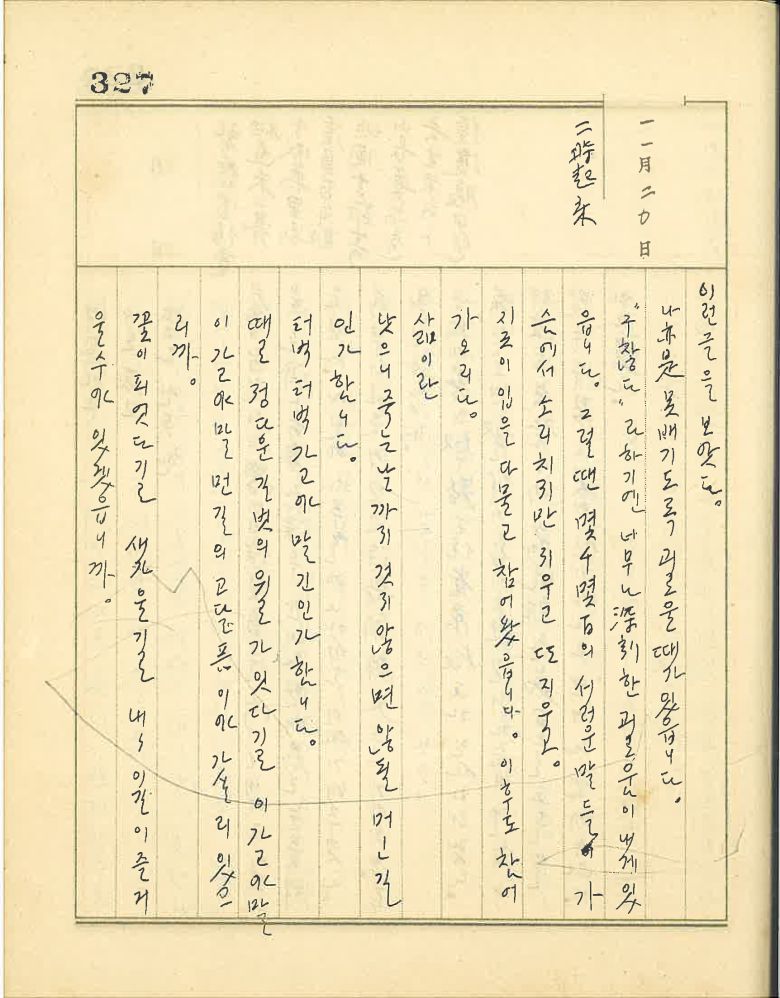 327
一一月二0日
二時起床
이런글을 보앗다.
나亦是 못배기도록 괴로울때가 있읍니다.
"구찮다" 라하기엔 너무나 深刻한 괴로움이 내게있
읍니다. 그럴땐 몇千몇百의 서러운말들이 가
슴에서 소리치기만 피우고 또 지우고.
지긋이 입을 다물고 참어왔읍니다. 이후도 참어
가오리다.
삶이란
낳으니 죽는날까지 걷지않으면 않될 머ㅡㄴ길
인가 합니다.
터벅터벅 가고야 말 긴인가 합니다.
때론 정다운 길벗의 위로가 잇다기로 이 가고야말
이 가고야말 먼길의 고달픔이야 가실리 있으
리까.
꽃이 피엿다기로 새가 운기로 내 이길이 즐거
울수야 있겠읍니까.